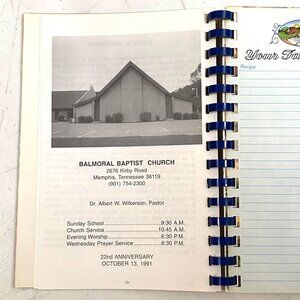 BALMORAL BAPTIST CHURCH
2676 Kirby Road
Memphis, Tennessee 38119
(901) 754-2300
Dr. Albert W. Wilkerson, Pastor
Sunday School 9:30 A.M.
Church Service 10:45 A.M.
Evening Worship 6:30 P.M.
Wednesday Prayer Service 6:30 P.M.
22nd ANNIVERSARY
OCTOBER 13, 1991
Your
Recipe